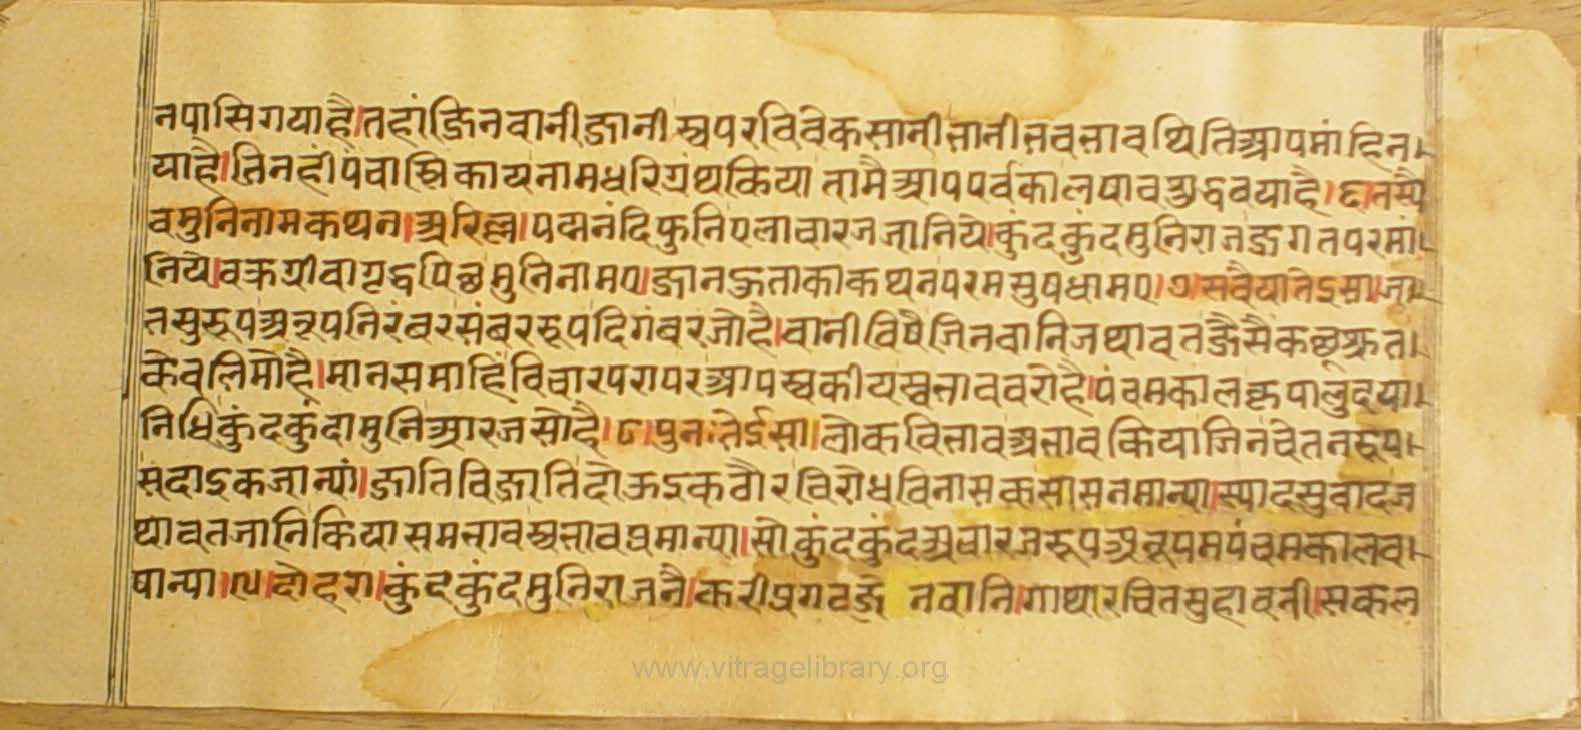 नपासिगयाहै।तहांजिनवानीज्ञानीस्वपरविवेकसानीतानीतवतावथितिआपमांहिन
याहै।तिनहीपंचास्तिकायनामधरिग्रंथकिया तामैआपपर्वकालषावशुद्धवयाहै।६।तस्यै
वमुनिनामकथन।अरिल्ल।पद्मनंदिफुनिएलाचारजजानिये।कुंदकुंदमुनिराजजगतपरमां
निये।वक्रग्रीवागृद्धपिच्छमुनिनामए।ज्ञानऊताकाकथनपरमसुषधामए।७।सवैयातेईसा।जा
तसुरूपअनूपनिरंबरसंबररूपदिगंबरजोहै।वानीविषैजिनवानिजथावतजैसैकछूश्रुत
केवलिमोहै।मानसमाहिंविचारपरापरआपस्वकीयस्वभाववरोहै।पंचमकालकृपालुदया
निधिकुंदकुंदामुनिआरजसोहै।८।पुनःतेईसा।लोकविभावअभावकियाजिनचेतनरूप
सदाइकजान्यां।ज्ञातिविज्ञातिदोऊइकठौरविरोधविनासकसासनमान्या।स्यादसुवादज
थावतजानिकियासमभावस्वभावप्रमान्या।सोकुंदकुंदअचारजरूपअनूपमपंचमकालव
षान्या।९।दोहरा।कुंदकुंदमुनिराजनै।करीप्रगटजि नवानि।गाथारचितसुहावनी।सकल
www.vitragelibrary.org